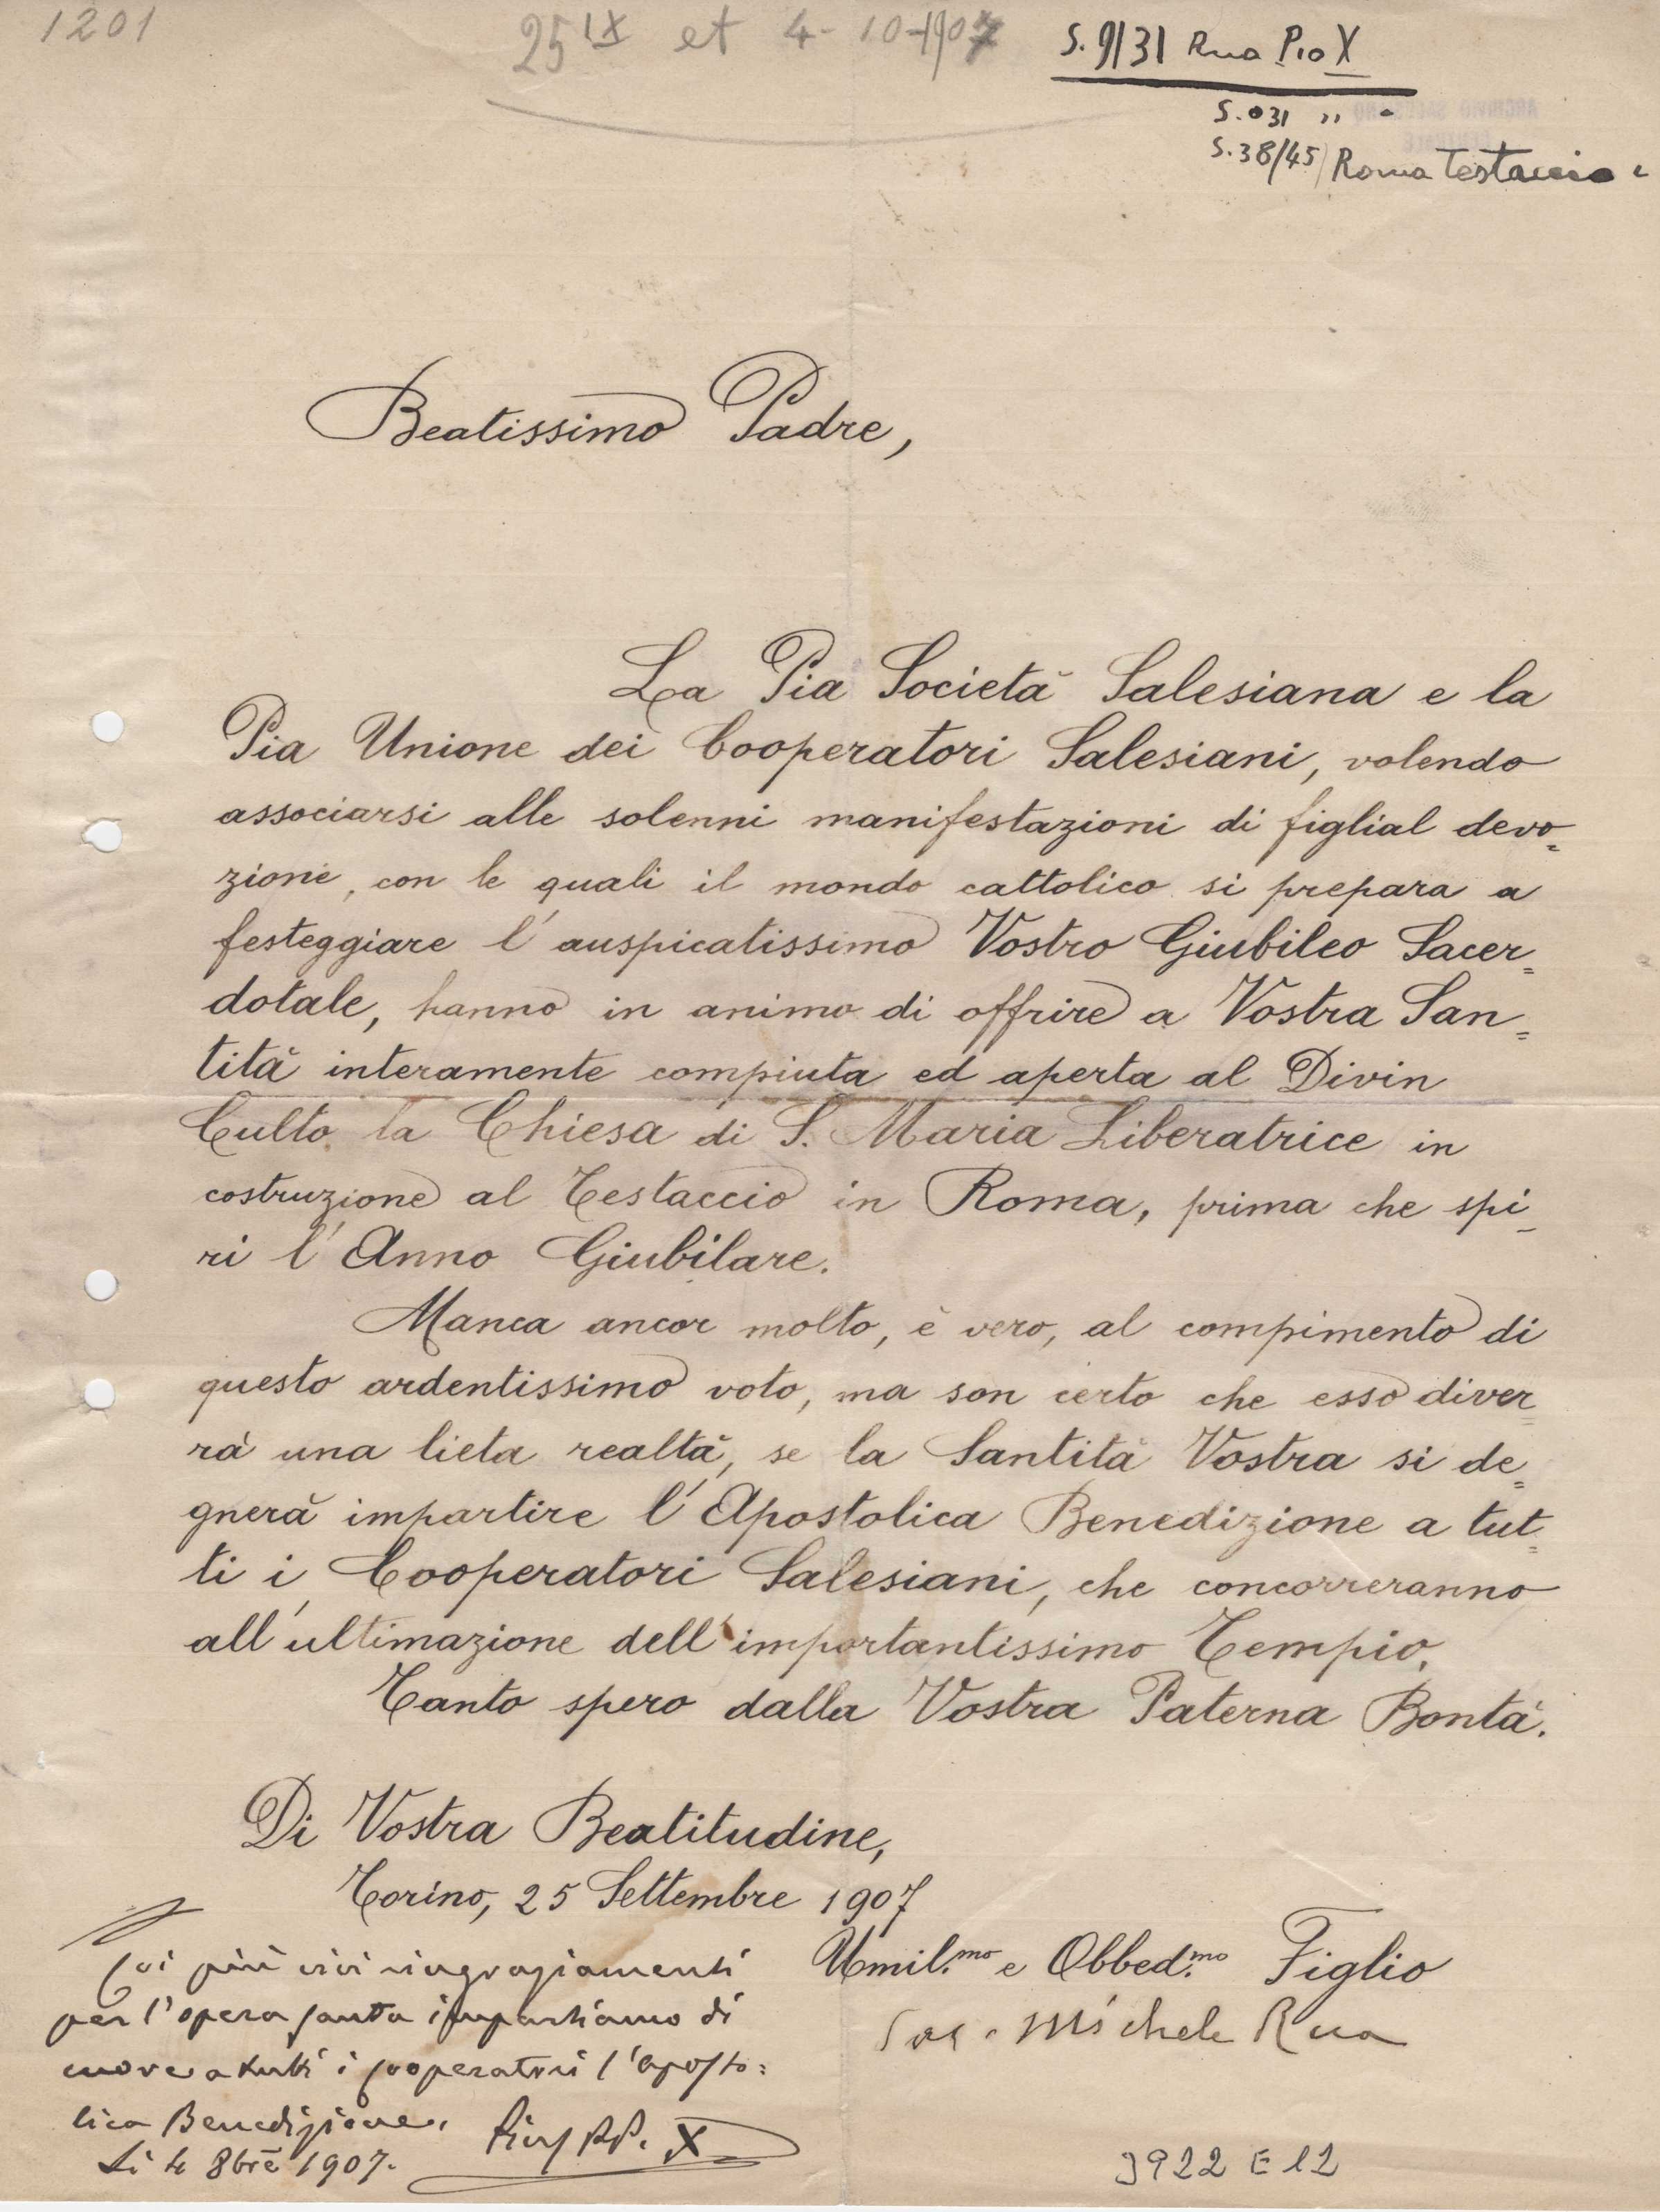 1201
25 IX et 4-10-1907
S. 9/31 Rua Pio X
S. 031 " "
S. 38/45 Roma Testaccio
Beatissimo Padre,
La Pia Società Salesiana e la
Pia Unione dei Cooperatori Salesiani, volendo
associarsi alle solenni manifestazioni di figlial devo=
zione, con le quali il mondo cattolico si prepara a
festeggiare l'auspicatissimo Vostro Giubileo Sacer=
dotale, hanno in animo di offrire a Vostra San=
tità interamente compiuta ed aperta al Divin
Culto la Chiesa di S. Maria Liberatrice in
costruzione al Testaccio in Roma, prima che spi-
ri l'Anno Giubilare.
Manca ancor molto, è vero, al compimento di
questo ardentissimo voto, ma son certo che esso diver=
rà una lieta realtà, se la Santità Vostra si de=
gnerà impartire l'Apostolica Benedizione a tut=
ti i Cooperatori Salesiani, che concorreranno
all'ultimazione dell'importantissimo Tempio.
Tanto spero dalla Vostra Paterna Bontà.
Di Vostra Beatitudine,
Torino, 25 Settembre 1907
Umil.mo e Obbed.mo Figlio
Sac. Michele Rua
Coi più vivi ringraziamenti
per l'opera santa impartiamo di
cuore a tutti i cooperatori l'aposto=
lica Benedizione.
Li 4 8bre 1907.
Pius PP. X
3922 E 12